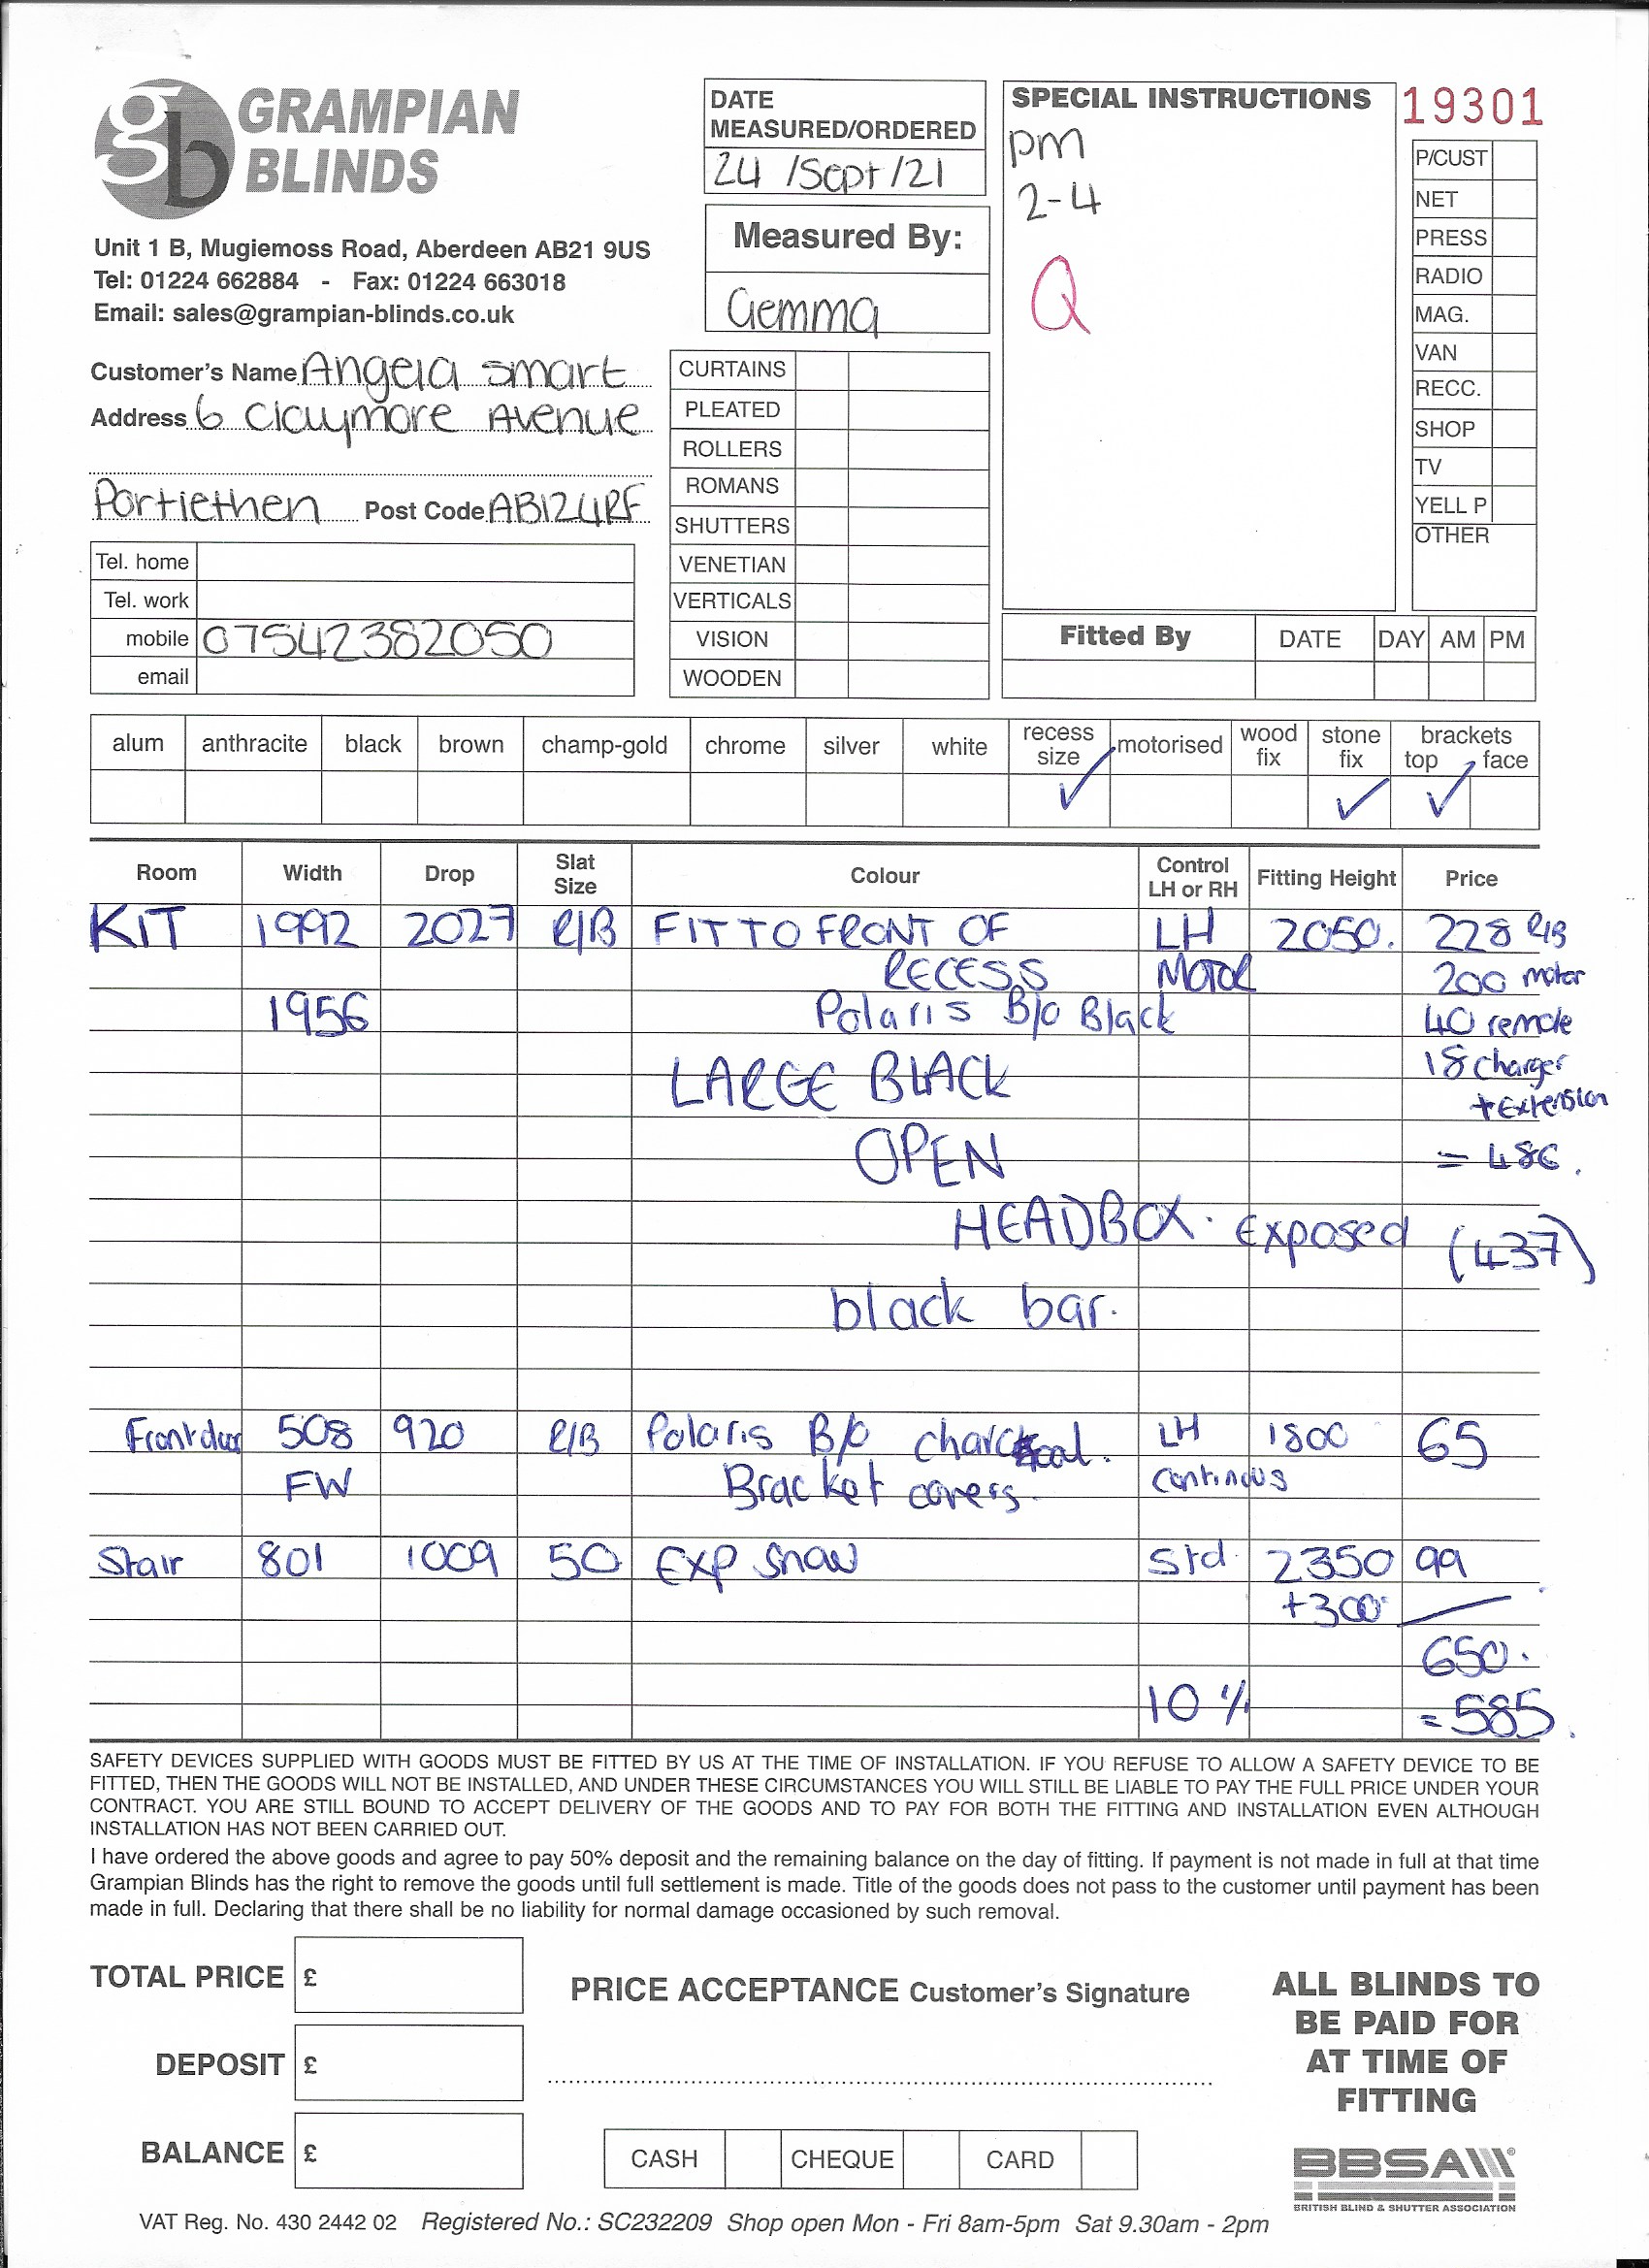 gb GRAMPIAN
BLINDS
Unit 1 B, Mugiemoss Road, Aberdeen AB21 9US
Tel: 01224 662884 - Fax: 01224 663018
Email: sales@grampian-blinds.co.uk
Customer's Name Angela Smart
Address 6 Claymore Avenue
Portlethen Post Code AB12 4RF
Tel. home
Tel. work
mobile 07542382050
email
DATE
MEASURED/ORDERED
24 /Sept/21
Measured By:
Gemma
CURTAINS
PLEATED
ROLLERS
ROMANS
SHUTTERS
VENETIAN
VERTICALS
VISION
WOODEN
SPECIAL INSTRUCTIONS
pm
2-4
Q
19301
P/CUST
NET
PRESS
RADIO
MAG.
VAN
RECC.
SHOP
TV
YELL P
OTHER
Fitted By DATE DAY AM PM
alum anthracite black brown champ-gold chrome silver white recess size motorised wood fix stone fix brackets top face
✓ ✓ ✓
Room Width Drop Slat Size Colour Control LH or RH Fitting Height Price
KIT 1992 2027 R/B FIT TO FRONT OF LH 2050. 228 R/B
RECESS MOTOR 200 motor
1956 Polaris B/o Black 40 remote
LARGE BLACK 18 charger
+ Extension
OPEN = 486.
HEADBOX. Exposed (437)
black bar.
Front door 508 920 R/B Polaris B/o charcoal. LH 1800 65
FW Bracket covers. continous
Stair 801 1009 50 Exp Snow Std. 2350 99
+300
650.
10 % = 585.
SAFETY DEVICES SUPPLIED WITH GOODS MUST BE FITTED BY US AT THE TIME OF INSTALLATION. IF YOU REFUSE TO ALLOW A SAFETY DEVICE TO BE
FITTED, THEN THE GOODS WILL NOT BE INSTALLED, AND UNDER THESE CIRCUMSTANCES YOU WILL STILL BE LIABLE TO PAY THE FULL PRICE UNDER YOUR
CONTRACT. YOU ARE STILL BOUND TO ACCEPT DELIVERY OF THE GOODS AND TO PAY FOR BOTH THE FITTING AND INSTALLATION EVEN ALTHOUGH
INSTALLATION HAS NOT BEEN CARRIED OUT.
I have ordered the above goods and agree to pay 50% deposit and the remaining balance on the day of fitting. If payment is not made in full at that time
Grampian Blinds has the right to remove the goods until full settlement is made. Title of the goods does not pass to the customer until payment has been
made in full. Declaring that there shall be no liability for normal damage occasioned by such removal.
TOTAL PRICE £
DEPOSIT £
BALANCE £
PRICE ACCEPTANCE Customer's Signature
CASH CHEQUE CARD
ALL BLINDS TO
BE PAID FOR
AT TIME OF
FITTING
BBSA
BRITISH BLIND & SHUTTER ASSOCIATION
VAT Reg. No. 430 2442 02 Registered No.: SC232209 Shop open Mon - Fri 8am-5pm Sat 9.30am - 2pm